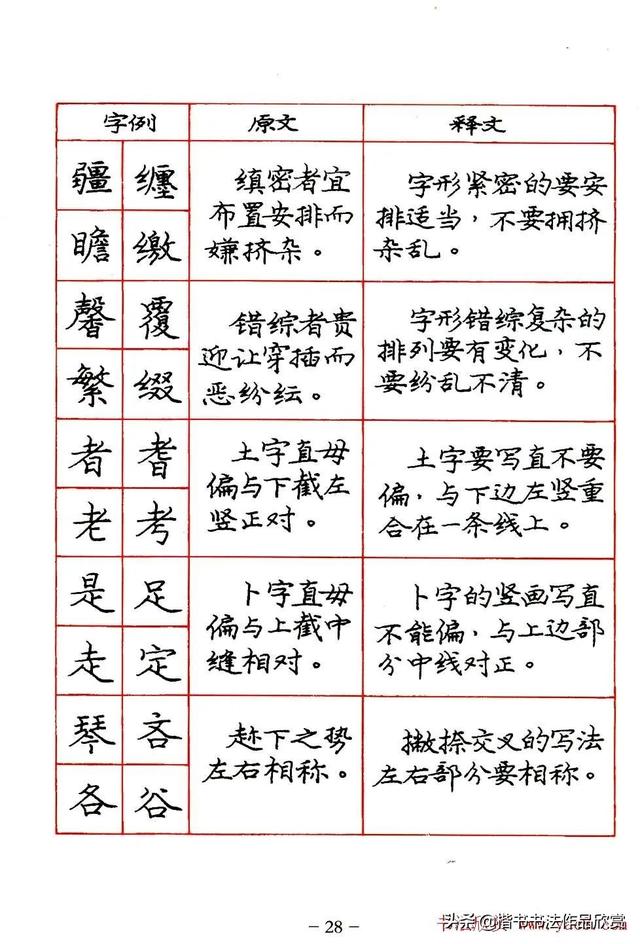 字例 原文 释文
疆 缠
瞻 缴
缜密者宜
布置安排而
嫌挤杂。
字形紧密的要安
排适当，不要拥挤
杂乱。
馨 覆
繁 缀
错综者贵
迎让穿插而
恶纷纭。
字形错综复杂的
排列要有变化，不
要纷乱不清。
者 耆
老 考
土字直毋
偏与下截左
竖正对。
土字要写直不要
偏，与下边左竖重
合在一条线上。
是 足
走 定
卜字直毋
偏与上截中
缝相对。
卜字的竖画写直
不能偏，与上边部
分中线对正。
琴 吝
各 谷
趁下之势
左右相称。
撇捺交叉的写法
左右部分要相称。
- 28 -
头条@楷书书法作品欣赏